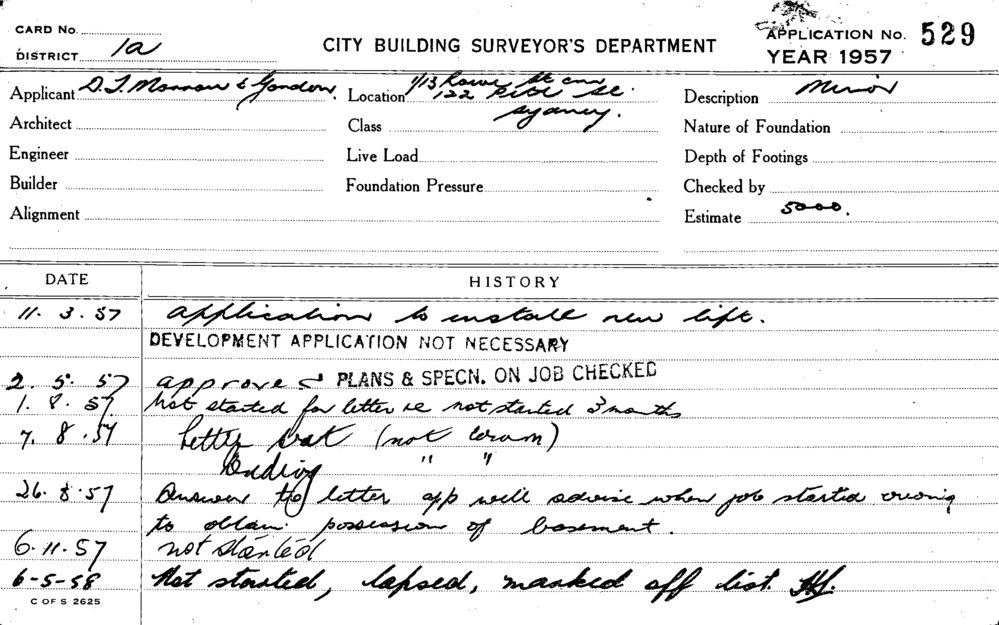 CARD No.
DISTRICT 1a
CITY BUILDING SURVEYOR'S DEPARTMENT
APPLICATION No. 529
YEAR 1957
Applicant D. T. Morrow & Gordon.
Location 1/13 Rowe St cnr
122 Pitt St.
Sydney.
Description Minor
Architect
Class
Nature of Foundation
Engineer
Live Load
Depth of Footings
Builder
Foundation Pressure
Checked by
Alignment
Estimate 5000.
DATE HISTORY
11. 3. 57 Application to install new lift.
DEVELOPMENT APPLICATION NOT NECESSARY
2. 5. 57 approved PLANS & SPECN. ON JOB CHECKED
1. 8. 57 Not started for letter re not started 3 months
7. 8. 57 Letter sent (not commn)
" "
26. 8. 57 Answer to letter app will advise when job started owing
to obtain possession of basement.
6. 11. 57 not started
6-5-58 Not started, lapsed, marked off list.
C OF S 2625